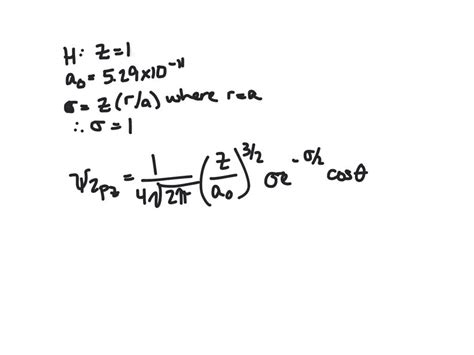 H: Z=1
a₀ = 5.29×10⁻¹¹
σ = Z (r/a) where r=a
∴ σ = 1
ψ₂pz = 1/(4√2π) (Z/a₀)^3/2 σe^-σ/2 cosθ